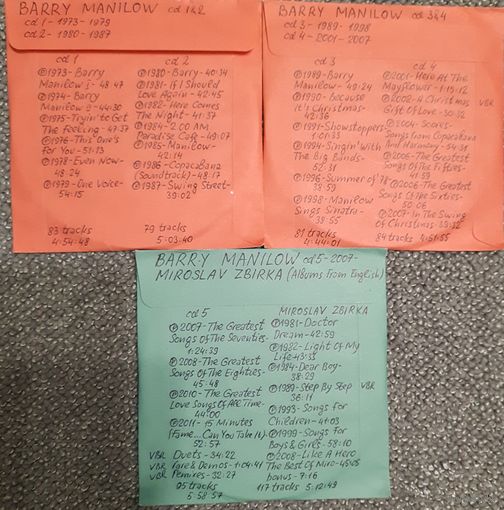 BARRY MANILOW cd 1&2
cd 1 - 1973 - 1979
cd 2 - 1980 - 1987
cd 1
℗1973-Barry
Manilow I- 48:47
℗1974-Barry
Manilow II- 44:30
℗1975-Tryin' to Get
The Feeling- 47:37
℗1976-This One's
For You- 51:13
℗1978-Even Now-
48:24
℗1979-One Voice-
54:15
83 tracks
4:54:48
cd 2
℗1980-Barry-40:34
℗1981-If I Should
Love Again-42:45
℗1982-Here Comes
The Night-41:37
℗1984-2.00 AM
Paradise Cafe-49:07
℗1985-Manilow-
42:14
℗1986-Copacabana
(Soundtrack)-48:17
℗1987-Swing Street-
39:02
79 tracks
5:03:40
BARRY MANILOW cd 3&4
cd 3 - 1989 - 1998
cd 4 - 2001 - 2007
cd 3
℗1989-Barry
Manilow-49:24
℗1990-Because
It's Christmas-
42:36
℗1991-Showstoppers
1:01:33
℗1994-Singin' With
The Big Bands-
52:31
℗1996-Summer of '78-
38:59
℗1998-Manilow
Sings Sinatra-
38:55
81 tracks
4:44:01
cd 4
℗2001-Here At The
Mayflower-1:15:12
℗2002-A Christmas VBR
Gift Of Love-30:32
℗2004-Scores-
Songs from Copacabana
And Harmony-54:31
℗2006-The Greatest
Songs Of The Fifties-
41:59
℗2006-The Greatest
Songs Of The Sixties-
50:06
℗2007-In The Swing
Of Christmas-39:32
84 tracks 4:51:55
BARRY MANILOW cd 5-2007-
MIROSLAV ZBIRKA (Albums from English)
cd 5
℗2007-The Greatest
Songs Of The Seventies-
1:24:39
℗2008-The Greatest
Songs Of The Eighties-
45:48
℗2010-The Greatest
Love Songs Of All Time-
44:00
℗2011-15 Minutes
(Fame... Can You Take It)-
52:57
VBR Duets-34:22
VBR Rare & Demos-1:04:41
VBR Remixes-32:27
95 tracks
5:58:57
MIROSLAV ZBIRKA
℗1981-Doctor
Dream-42:59
℗1982-Light Of My
Life-43:35
℗1984-Dear Boy-
38:29
℗1989-Step By Step VBR
36:11
℗1993-Songs For
Children-41:03
℗1999-Songs For
Boys & Girls-58:10
℗2008-Like A Hero
The Best Of Miro-45:05
bonus-7:16
117 tracks 5:12:49